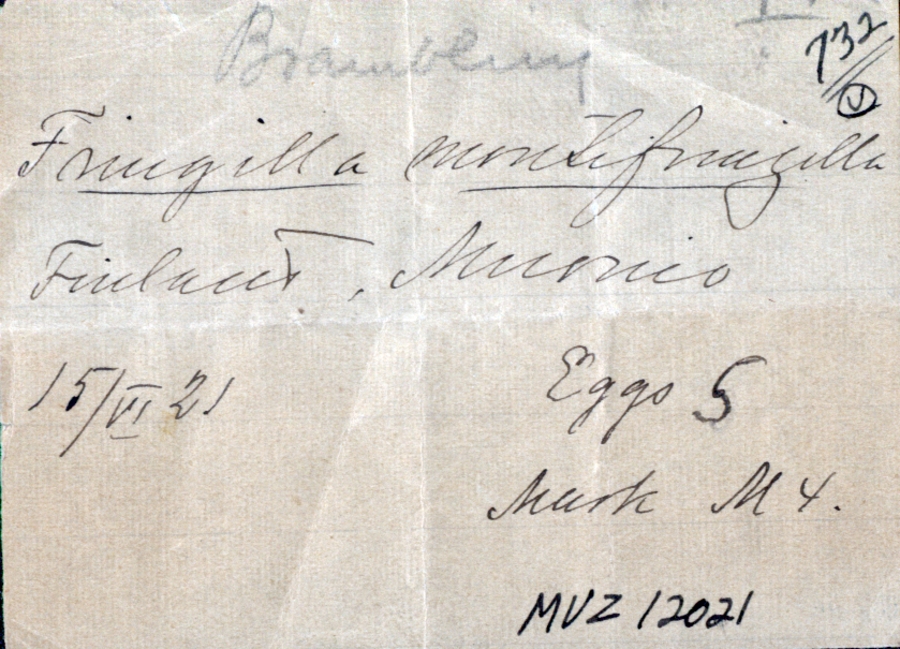 Brambling
732
Fringilla montifringilla
Finland, Muonio
15/VI 21
Eggs 5
Mark M 4.
MVZ 12021